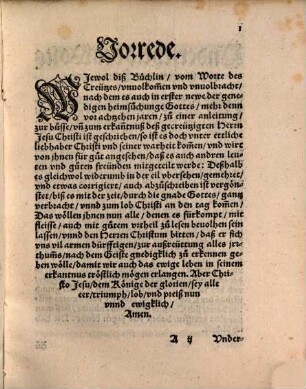 1
Vorrede.
WJewol diß Büchlin / vom Worte des
Creützes / vnuolkomen vnd vnuolbracht /
nach dem es auch in erster newe der gene-
digen heimsůchunge Gottes / mehr denn
vor achzehen jaren / zů einer anleitung /
zur bůsse / vñ zum erkañtnuß deß gecreützigten Herrn
Jesu Christi ist geschrieben / so ist es doch vnter etliche
liebhaber Christi vnd seiner warheit kom̃en / vnd es
von jhnen für gůt angesehen / daß es auch andern leu-
ten vnd gůten freünden mitgeteilt wurde: Deßhalb
es gleichwol widerumb in der eil vbersehen / gemehret /
vnd etwas corrigiert / auch abzůschreiben ist vergön-
stet / biß es mit der zeit / durch die gnade Gottes / gantz
verbracht / vnnd zum lob Christi an den tag kom̃en /
Das wöllen jhnen nun alle / denen es fürkompt / mit
fleisse / auch mit gůtem vrtheil zůlesen beuolhen sein
lassen / vnnd den Herren Christum bitten / daß er sich
vns vil armen dürfftigen / zur außreüttung alles jrr-
thum̃s / nach dem Geist gnedigklich zů erkennen ge-
ben wölle / damit wir auch das ewige leben in seinem
erkantnus tröstlich mögen erlangen. Aber Chri-
sto Jesu / dem Könige der glorien / sey alle
eer / triumph / lob / vnd preiß nun
vnnd ewigklich /
Amen.
A ij Vnder-